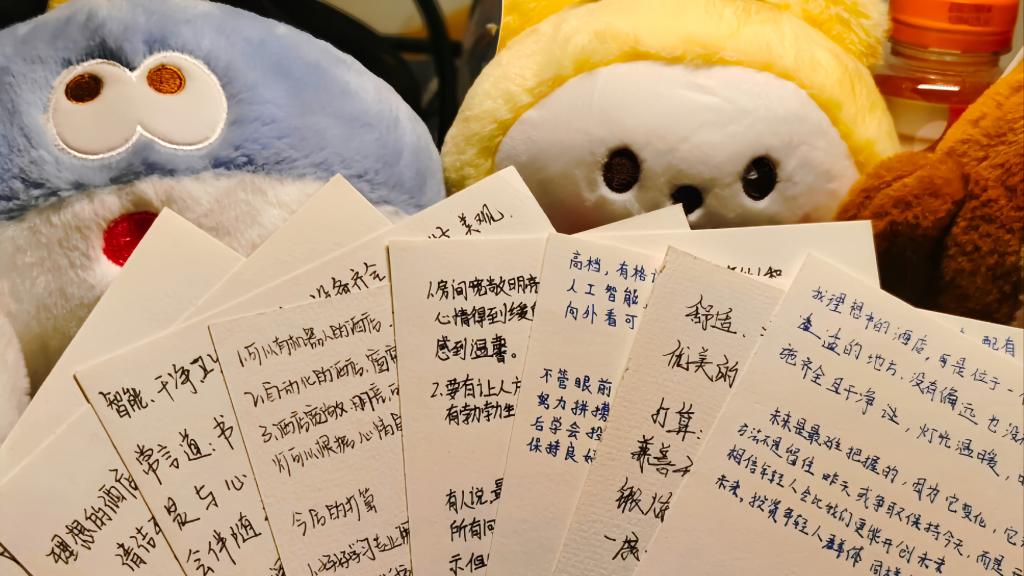 理想的酒店
智能、干净卫
常言道:书
是与心
会伴随
设备齐全
美观.
1.可以有机器人的酒店.
2.自动化的酒店.窗
3.酒店宽敞.明亮.
今后的打算
1.房间宽敞明亮
心情得到缓
感到温馨。
2.要有让人
有勃勃生
有人说
所有问
示但
高档,有格
人工智能
向外看可
不管眼前
努力拼搏
后学会投
保持良好
舒适.
优美的
打算:
兼善
锻炼
配有
我理想中的酒店,可是位于一
的地方,没有偏远也没
施齐全且干净 ,灯光温暖,
未来是最难把握的,因为它变化,它
方法不是留住昨天或争取保持今天,而是
相信年轻人会比我们更能开创未来
未来,投资年轻人群体 同样